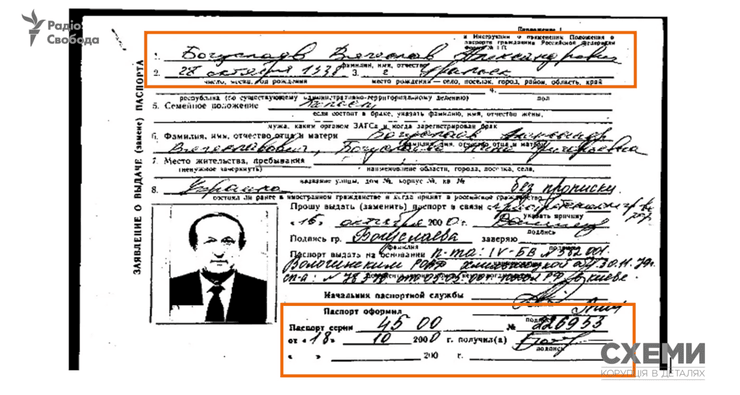 Радіо
Свобода
Приложение 1
к Инструкции о применении Положения о
паспорте гражданина Российской Федерации
форма № 1П
ЗАЯВЛЕНИЕ О ВЫДАЧЕ (замене) ПАСПОРТА
1. Богуслаев Вячеслав Александрович
фамилия, имя, отчество
2. 28 октября 1938 3. г. Уральск
число, месяц, год рождения место рождения — село, поселок, город, район, область, край
4.
республика (по существующему административно-территориальному делению) пол
5. Семейное положение
если состоит в браке, указать фамилию, имя, отчество жены,
мужа, каким органом ЗАГСа и когда зарегистрирован брак
6. Фамилия, имя, отчество отца и матери Богуслаев Александр
Вячеславович, Богуслаева Нина Григорьевна
фамилия, имя, отчество отца и матери
7. Место жительства, пребывания
(ненужное зачеркнуть) наименование области, города, поселка, села,
название улицы, дом №, корпус №, кв №
8. Украина без прописки
состоял ли ранее в иностранном гражданстве и когда принят в российское гражданство
Прошу выдать (заменить) паспорт в связи с
указать причину
«16» октября 2000 г.
подпись
Подпись гр. Богуслаева заверяю
фамилия подпись
Паспорт выдать на основании п-та: IV-БВ №
Начальник паспортной службы
подпись
Паспорт оформил
Паспорт серии 45 00 № 226953
от «18» 10 2000 г. получил(а)
подпись
« » 200 г.
СХЕМИ
КОРУПЦІЯ В ДЕТАЛЯХ